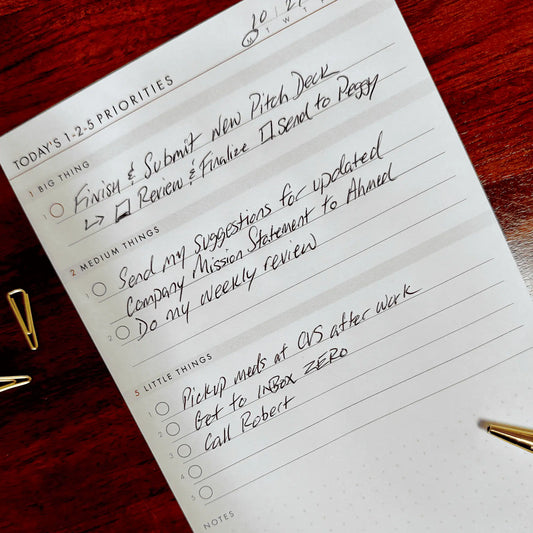 10/21
M T W T F
TODAY'S 1-2-5 PRIORITIES
1 BIG THING
1 Finish & Submit New Pitch Deck
↳ □ Review & Finalize □ Send to Peggy
2 MEDIUM THINGS
1 Send my suggestions for updated
Company Mission Statement to Ahmed
2 Do my weekly review
5 LITTLE THINGS
1 Pickup meds at CVS after work
2 Get to INBOX ZERO
3 Call Robert
4
5
NOTES